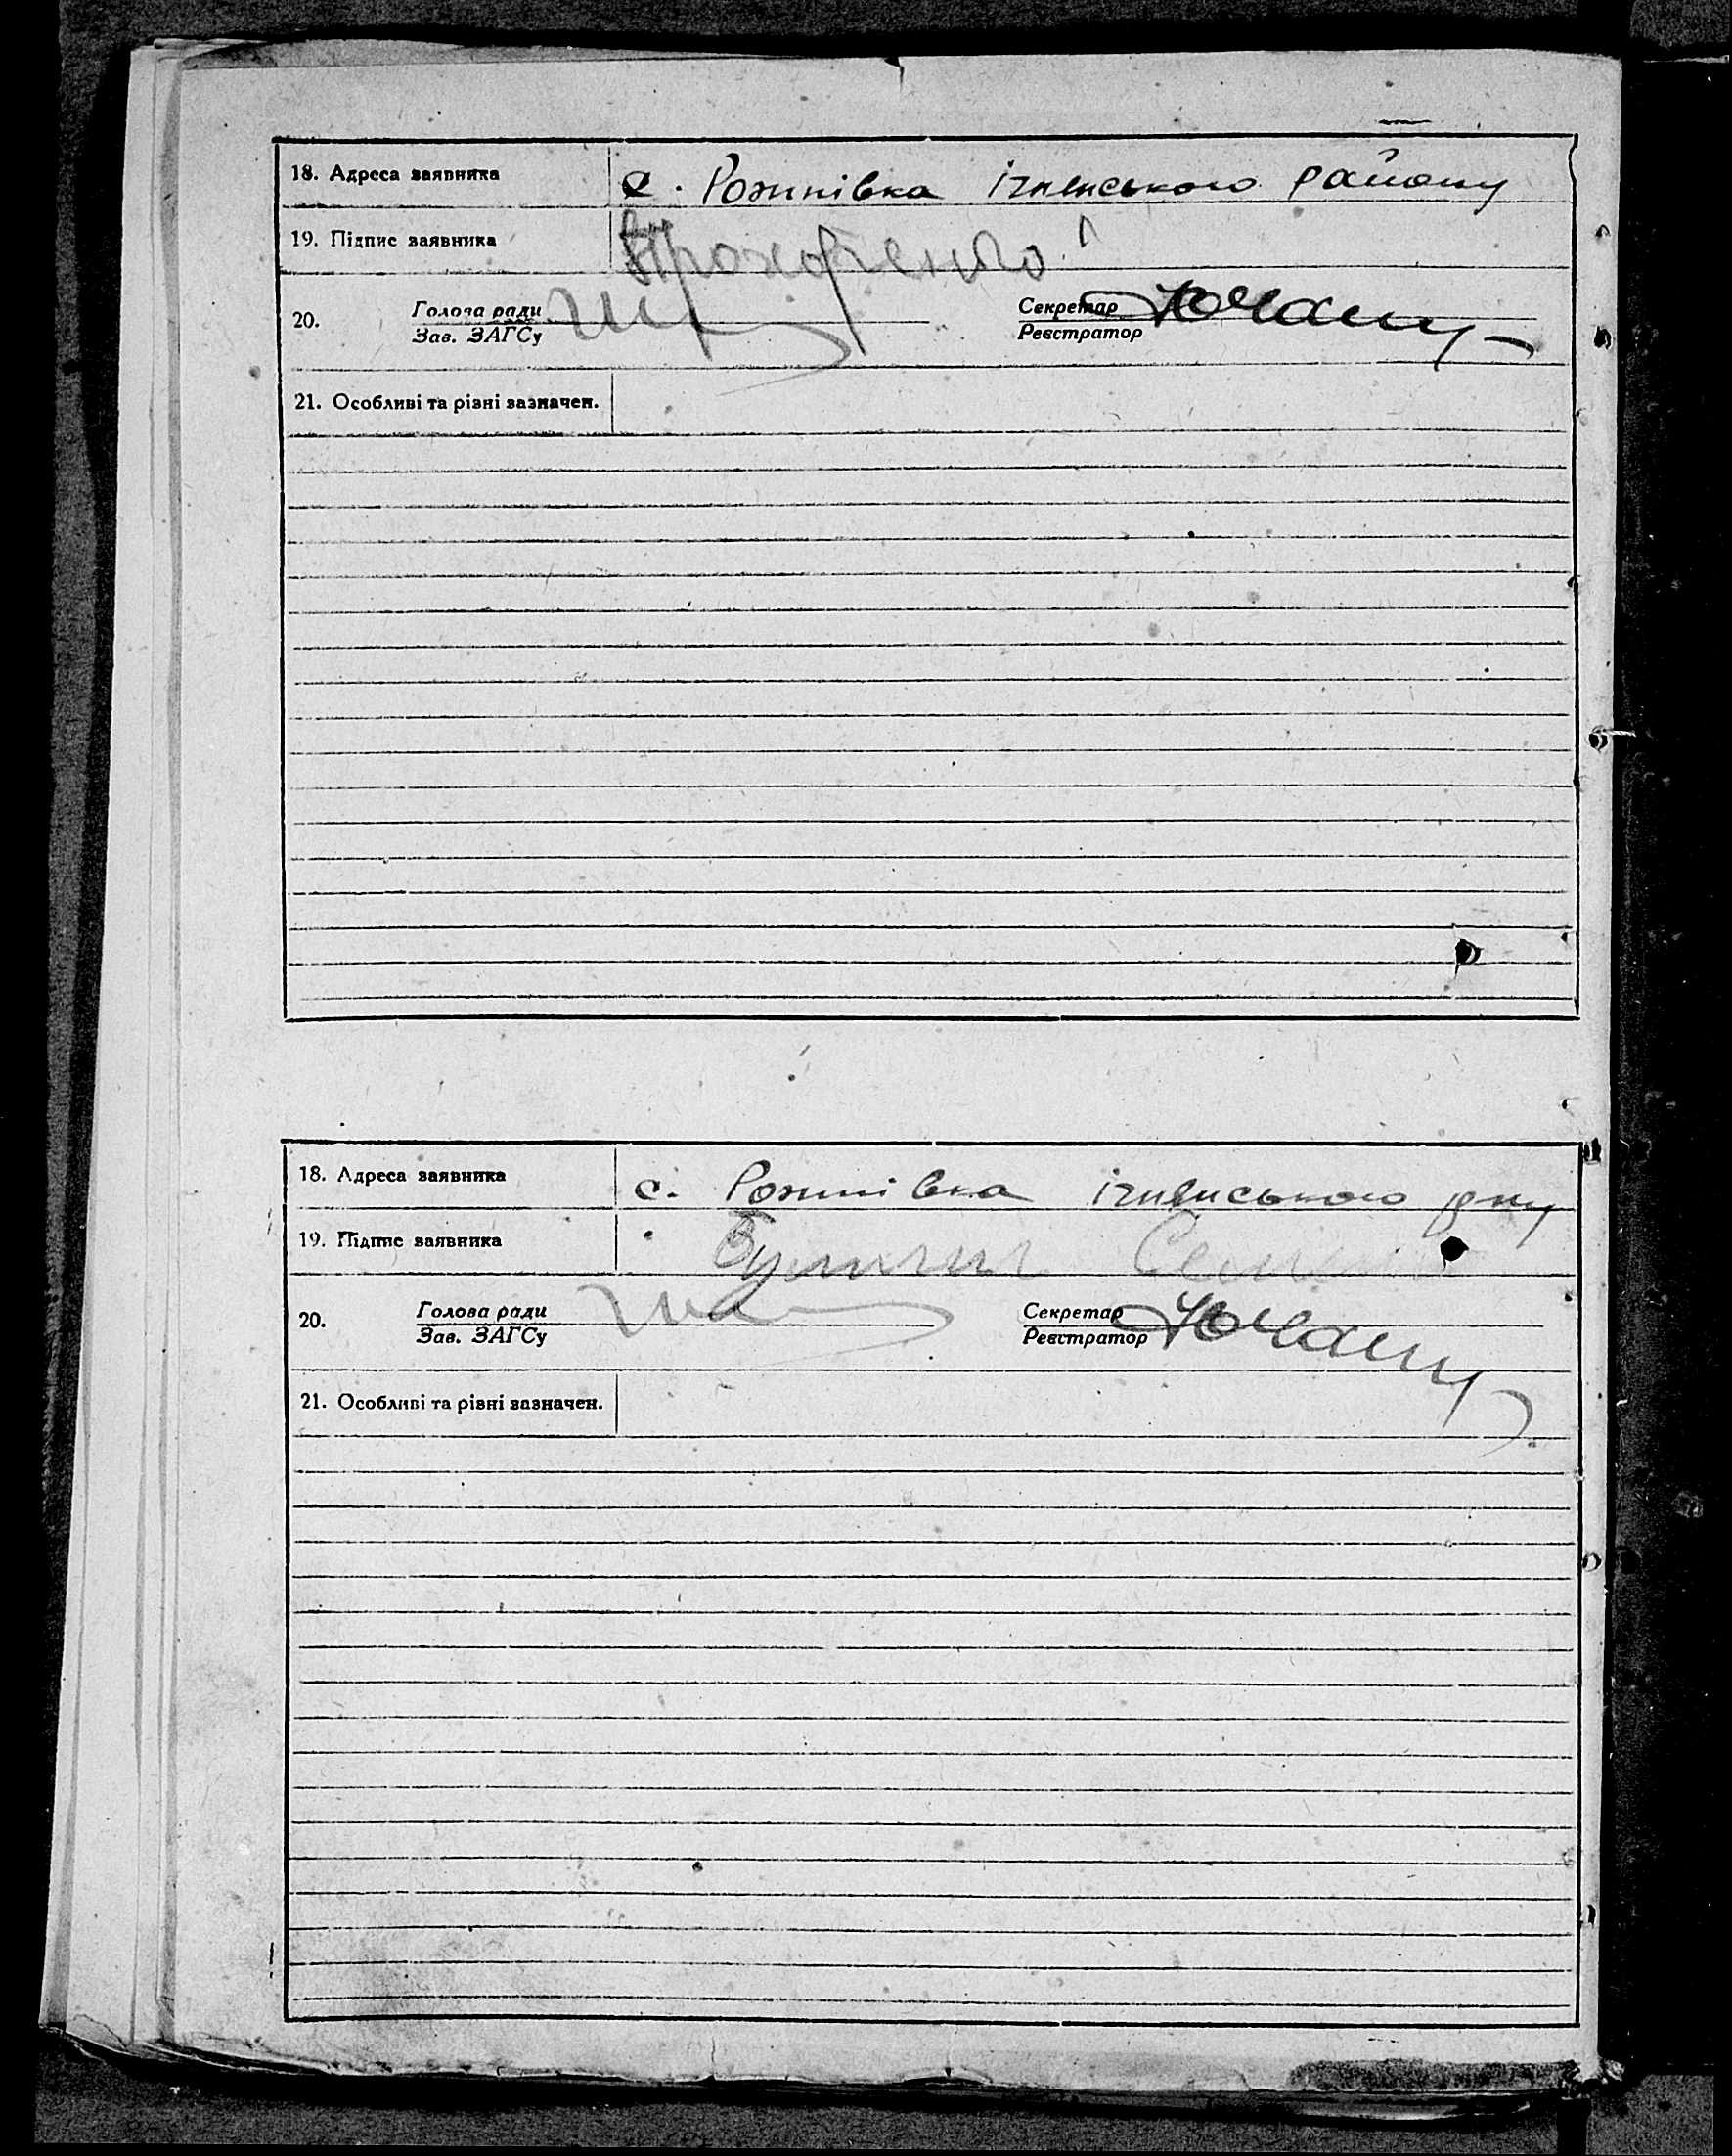 18. Адреса заявника с. Рожнівка ічнянського району
19. Підпис заявника Прохоренко
20. Голова ради Секретар
Зав. ЗАГСу Реєстратор
21. Особливі та різні зазначен.
18. Адреса заявника с. Рожнівка ічнянського р-ну
19. Підпис заявника
20. Голова ради Секретар
Зав. ЗАГСу Реєстратор
21. Особливі та різні зазначен.